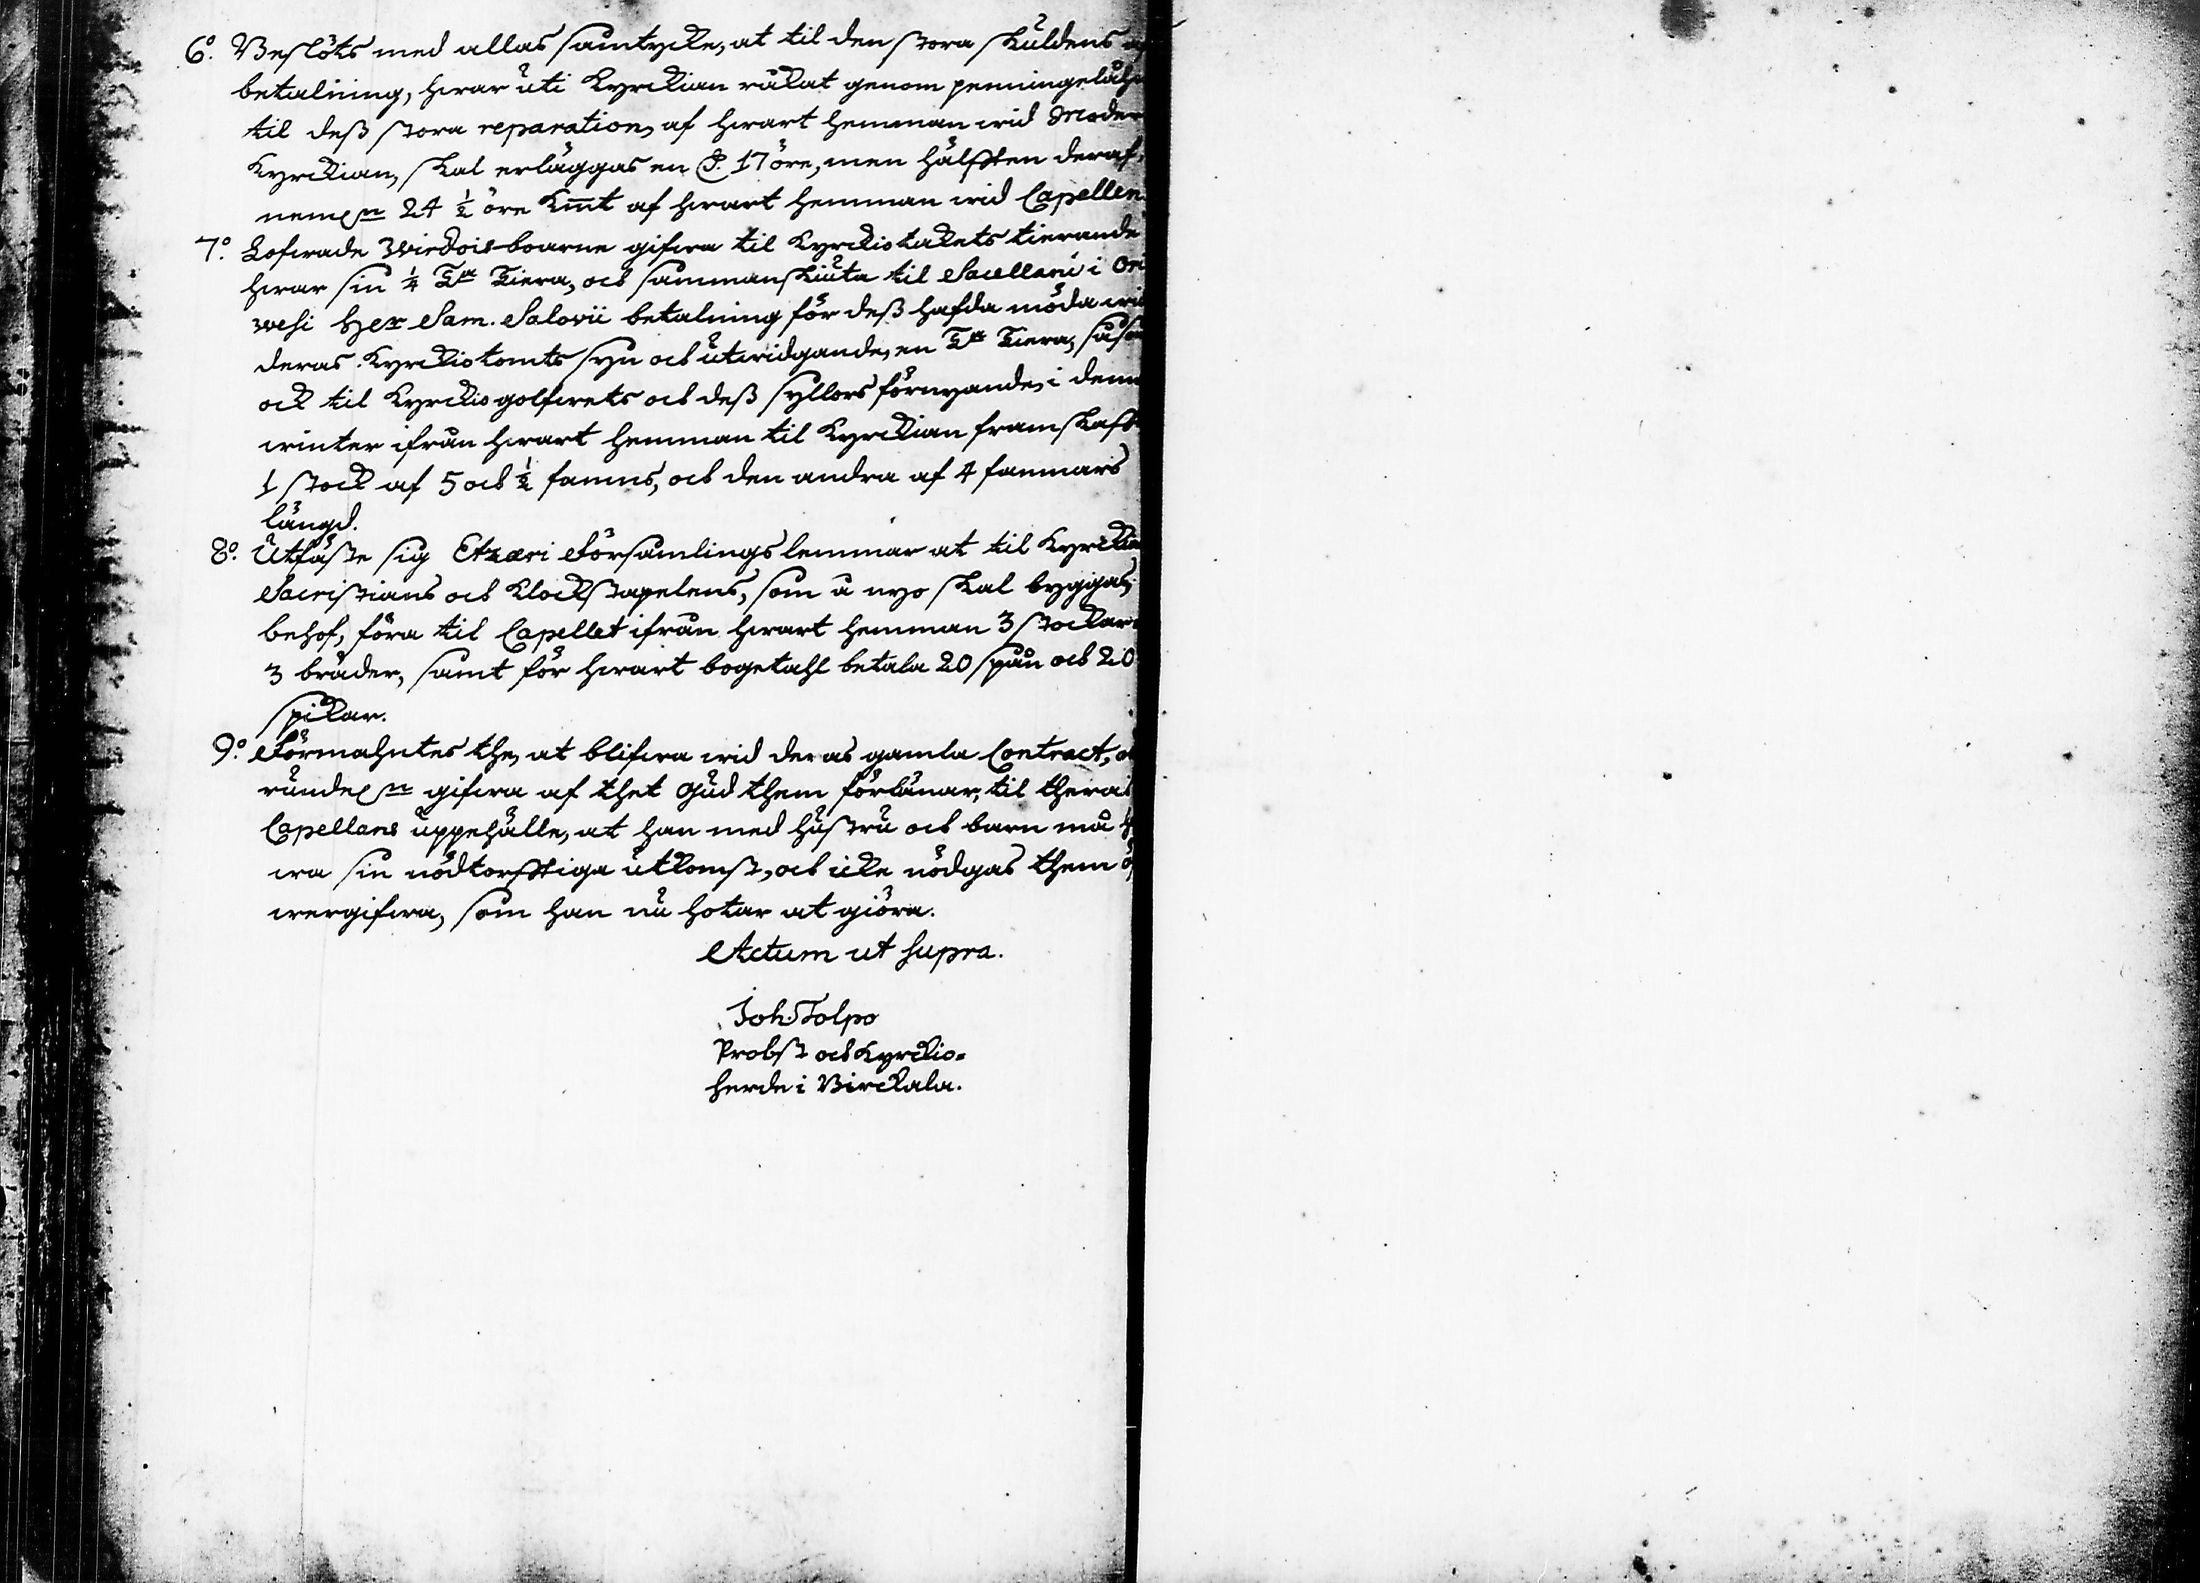 6:o Beslöts med allas samtycke, at til den stora skuldens af
betalning, hwar uti Kyrckian råkat genom penningelåhn
til desz stora reparation, af hwart hemman wid Moder
Kyrckian, skal erläggas en d. 17 öre, men hälfften deraf,
neml:n 24 1/2 öre kmt af hwart hemman wid Capellen.
7:o Lofwade Wirdoisboarne gifwa til Kyrckiotakets tierande
hwar sin 1/4 T:a Tiera, och sammanskiuta til Sacellani i Ori
wesi Her Sam. Salovii betalning för desz hafda möda wid
deras Kyrckiotomts syn och utwidgande, en T:a Tiera, såsom
ock til Kyrckiogolfwets och desz syllors förnyande, i denna
winter ifrån hwart hemman til Kyrckian framskaffa
1 stock af 5 och 1/2 famns, och den andra af 4 famnars
längd.
8:o Utfäste sig Etzæri Församlings lemmar at til Kyrckians
Sacristians och Klockstapelens, som å nyo skal byggas,
behof, föra til Capellet ifrån hwart hemman 3 stockar
3 bräder, samt för hwart bogetahl betala 20 spån och 20
spikar.
9:o Förmahntes the, at blifwa wid deras gamla Contract,
runde:n gifwa af thet Gud them förlänar, til theras
Capellans uppehälle, at han med hustru och barn må
wa sin nödtorfftiga utkomst, och icke nödgas them öf
wergifwa, som han nu hotar at giöra.
Actum ut supra.
Joh: Tolpo
Probst och Kyrckio=
herde i Birckala.